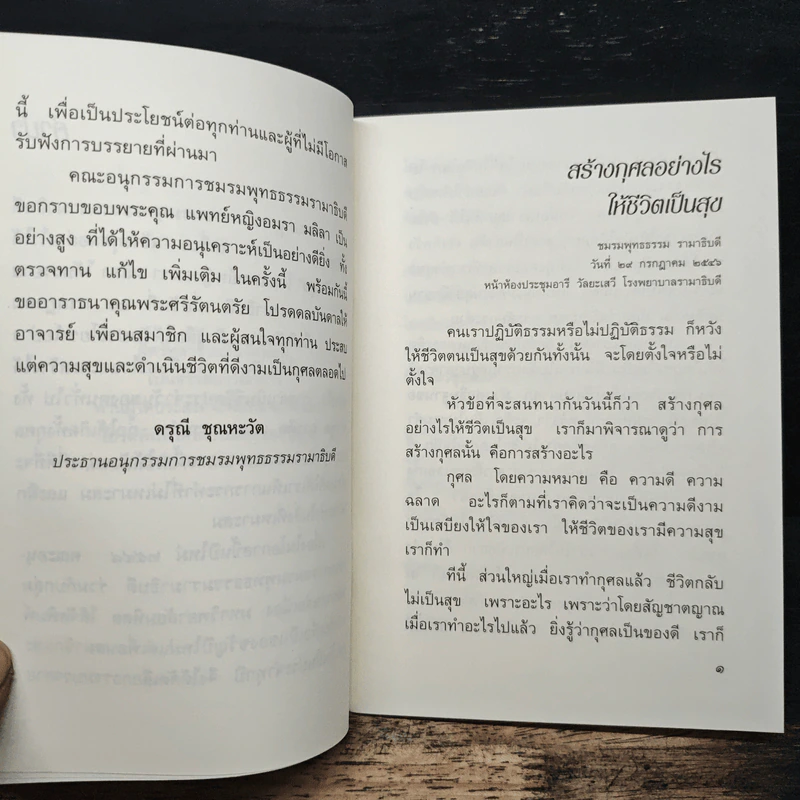 นี้ เพื่อเป็นประโยชน์ต่อทุกท่านและผู้ที่ไม่มีโอกาส
รับฟังการบรรยายที่ผ่านมา
คณะอนุกรรมการชมรมพุทธธรรมรามาธิบดี
ขอกราบขอบพระคุณ แพทย์หญิงอมรา มลิลา เป็น
อย่างสูง ที่ได้ให้ความอนุเคราะห์เป็นอย่างดียิ่ง ทั้ง
ตรวจทาน แก้ไข เพิ่มเติม ในครั้งนี้ พร้อมกันนี้
ขออาราธนาคุณพระศรีรัตนตรัย โปรดดลบันดาลให้
อาจารย์ เพื่อนสมาชิก และผู้สนใจทุกท่าน ประสบ
แต่ความสุขและดำเนินชีวิตที่ดีงามเป็นกุศลตลอดไป
ดรุณี ชุณหะวัต
ประธานอนุกรรมการชมรมพุทธธรรมรามาธิบดี
สร้างกุศลอย่างไร
ให้ชีวิตเป็นสุข
ชมรมพุทธธรรม รามาธิบดี
วันที่ ๒๙ กรกฎาคม ๒๕๔๖
หน้าห้องประชุมอารี วัลยะเสวี โรงพยาบาลรามาธิบดี
คนเราปฏิบัติธรรมหรือไม่ปฏิบัติธรรม ก็หวัง
ให้ชีวิตตนเป็นสุขด้วยกันทั้งนั้น จะโดยตั้งใจหรือไม่
ตั้งใจ
หัวข้อที่จะสนทนากันวันนี้ก็ว่า สร้างกุศล
อย่างไรให้ชีวิตเป็นสุข เราก็มาพิจารณาดูว่า การ
สร้างกุศลนั้น คือการสร้างอะไร
กุศล โดยความหมาย คือ ความดี ความ
ฉลาด อะไรก็ตามที่เราคิดว่าจะเป็นความดีงาม
เป็นเสบียงให้ใจของเรา ให้ชีวิตของเรามีความสุข
เราก็ทำ
ทีนี้ ส่วนใหญ่เมื่อเราทำกุศลแล้ว ชีวิตกลับ
ไม่เป็นสุข เพราะอะไร เพราะว่าโดยสัญชาตญาณ
เมื่อเราทำอะไรไปแล้ว ยิ่งรู้ว่ากุศลเป็นของดี เราก็
๑